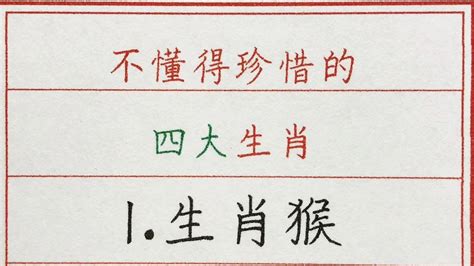 不懂得珍惜的
四大生肖
1.生肖猴